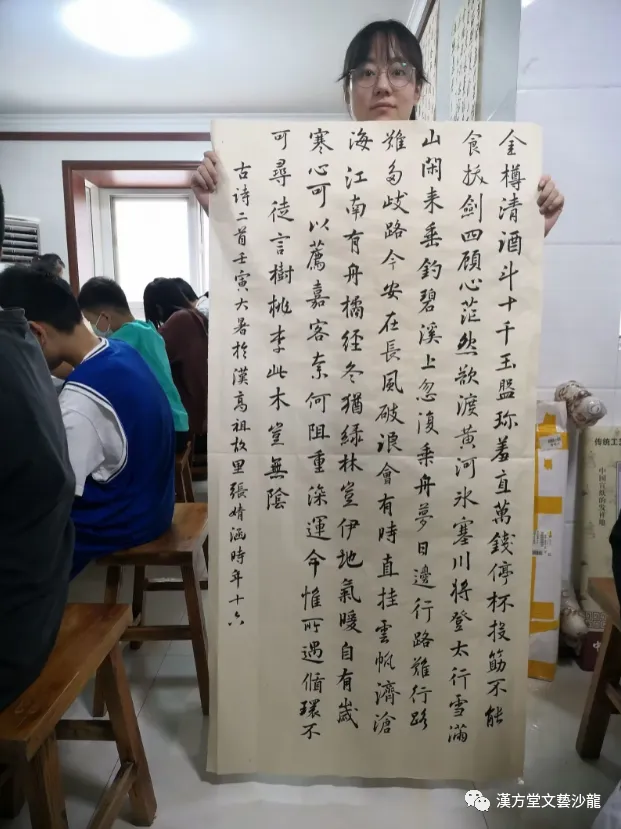 金樽清酒斗十千玉盤珎羞直萬錢停杯投筯不能
食拔劍四顧心茫然欲渡黃河氷塞川將登太行雪滿
山閑来垂釣碧溪上忽復乘舟夢日邊行路難行路
難多歧路今安在長風破浪會有時直挂雲帆濟滄
海江南有舟橘經冬猶綠林豈伊地氣暖自有歲
寒心可以薦嘉客奈何阻重深運命惟所遇循環不
可尋徒言樹桃李此木豈無陰
古诗二首壬寅大暑於漢高祖故里張婧涵時年十六
传统工
中国宣纸的发祥地
漢方堂文藝沙龍